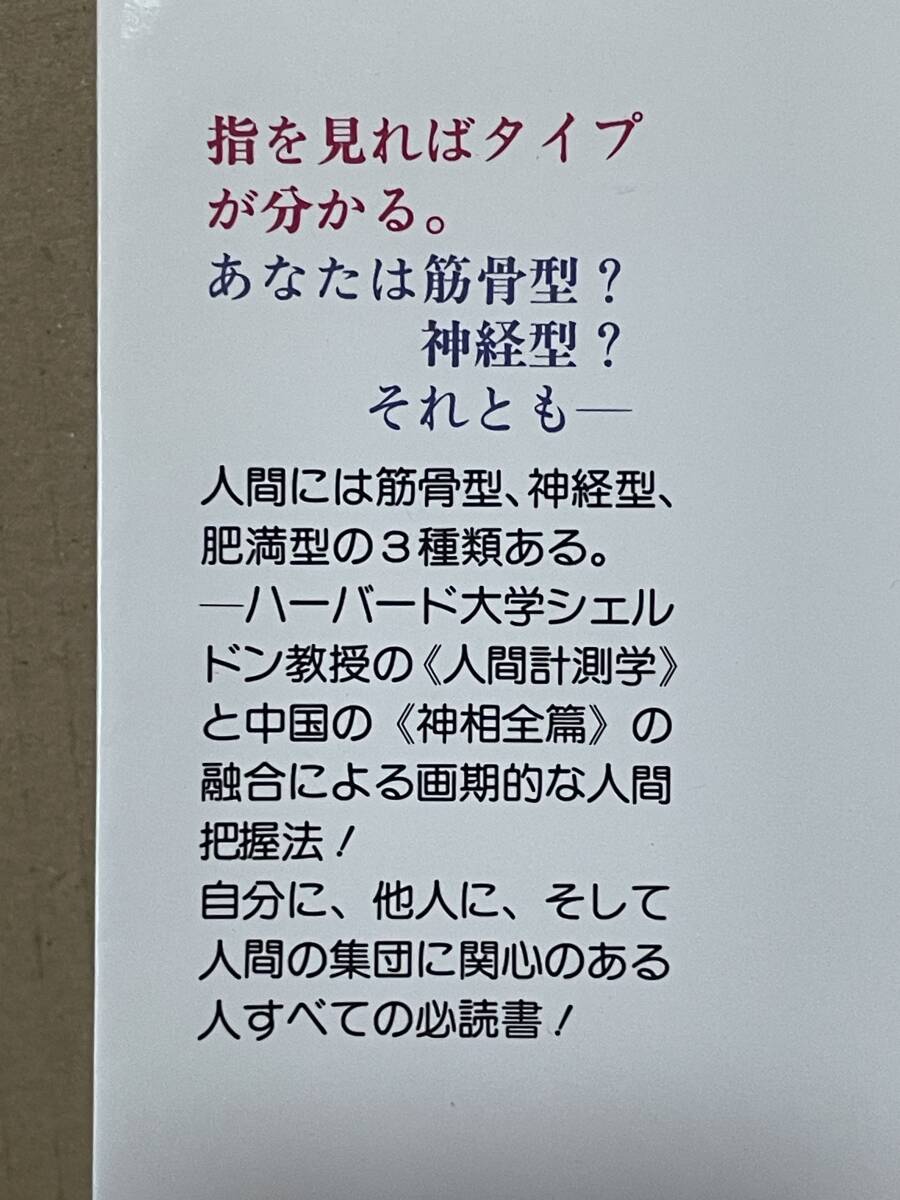 指を見ればタイプ
が分かる。
あなたは筋骨型？
神経型？
それとも―
人間には筋骨型、神経型、
肥満型の３種類ある。
―ハーバード大学シェル
ドン教授の《人間計測学》
と中国の《神相全篇》の
融合による画期的な人間
把握法！
自分に、他人に、そして
人間の集団に関心のある
人すべての必読書！